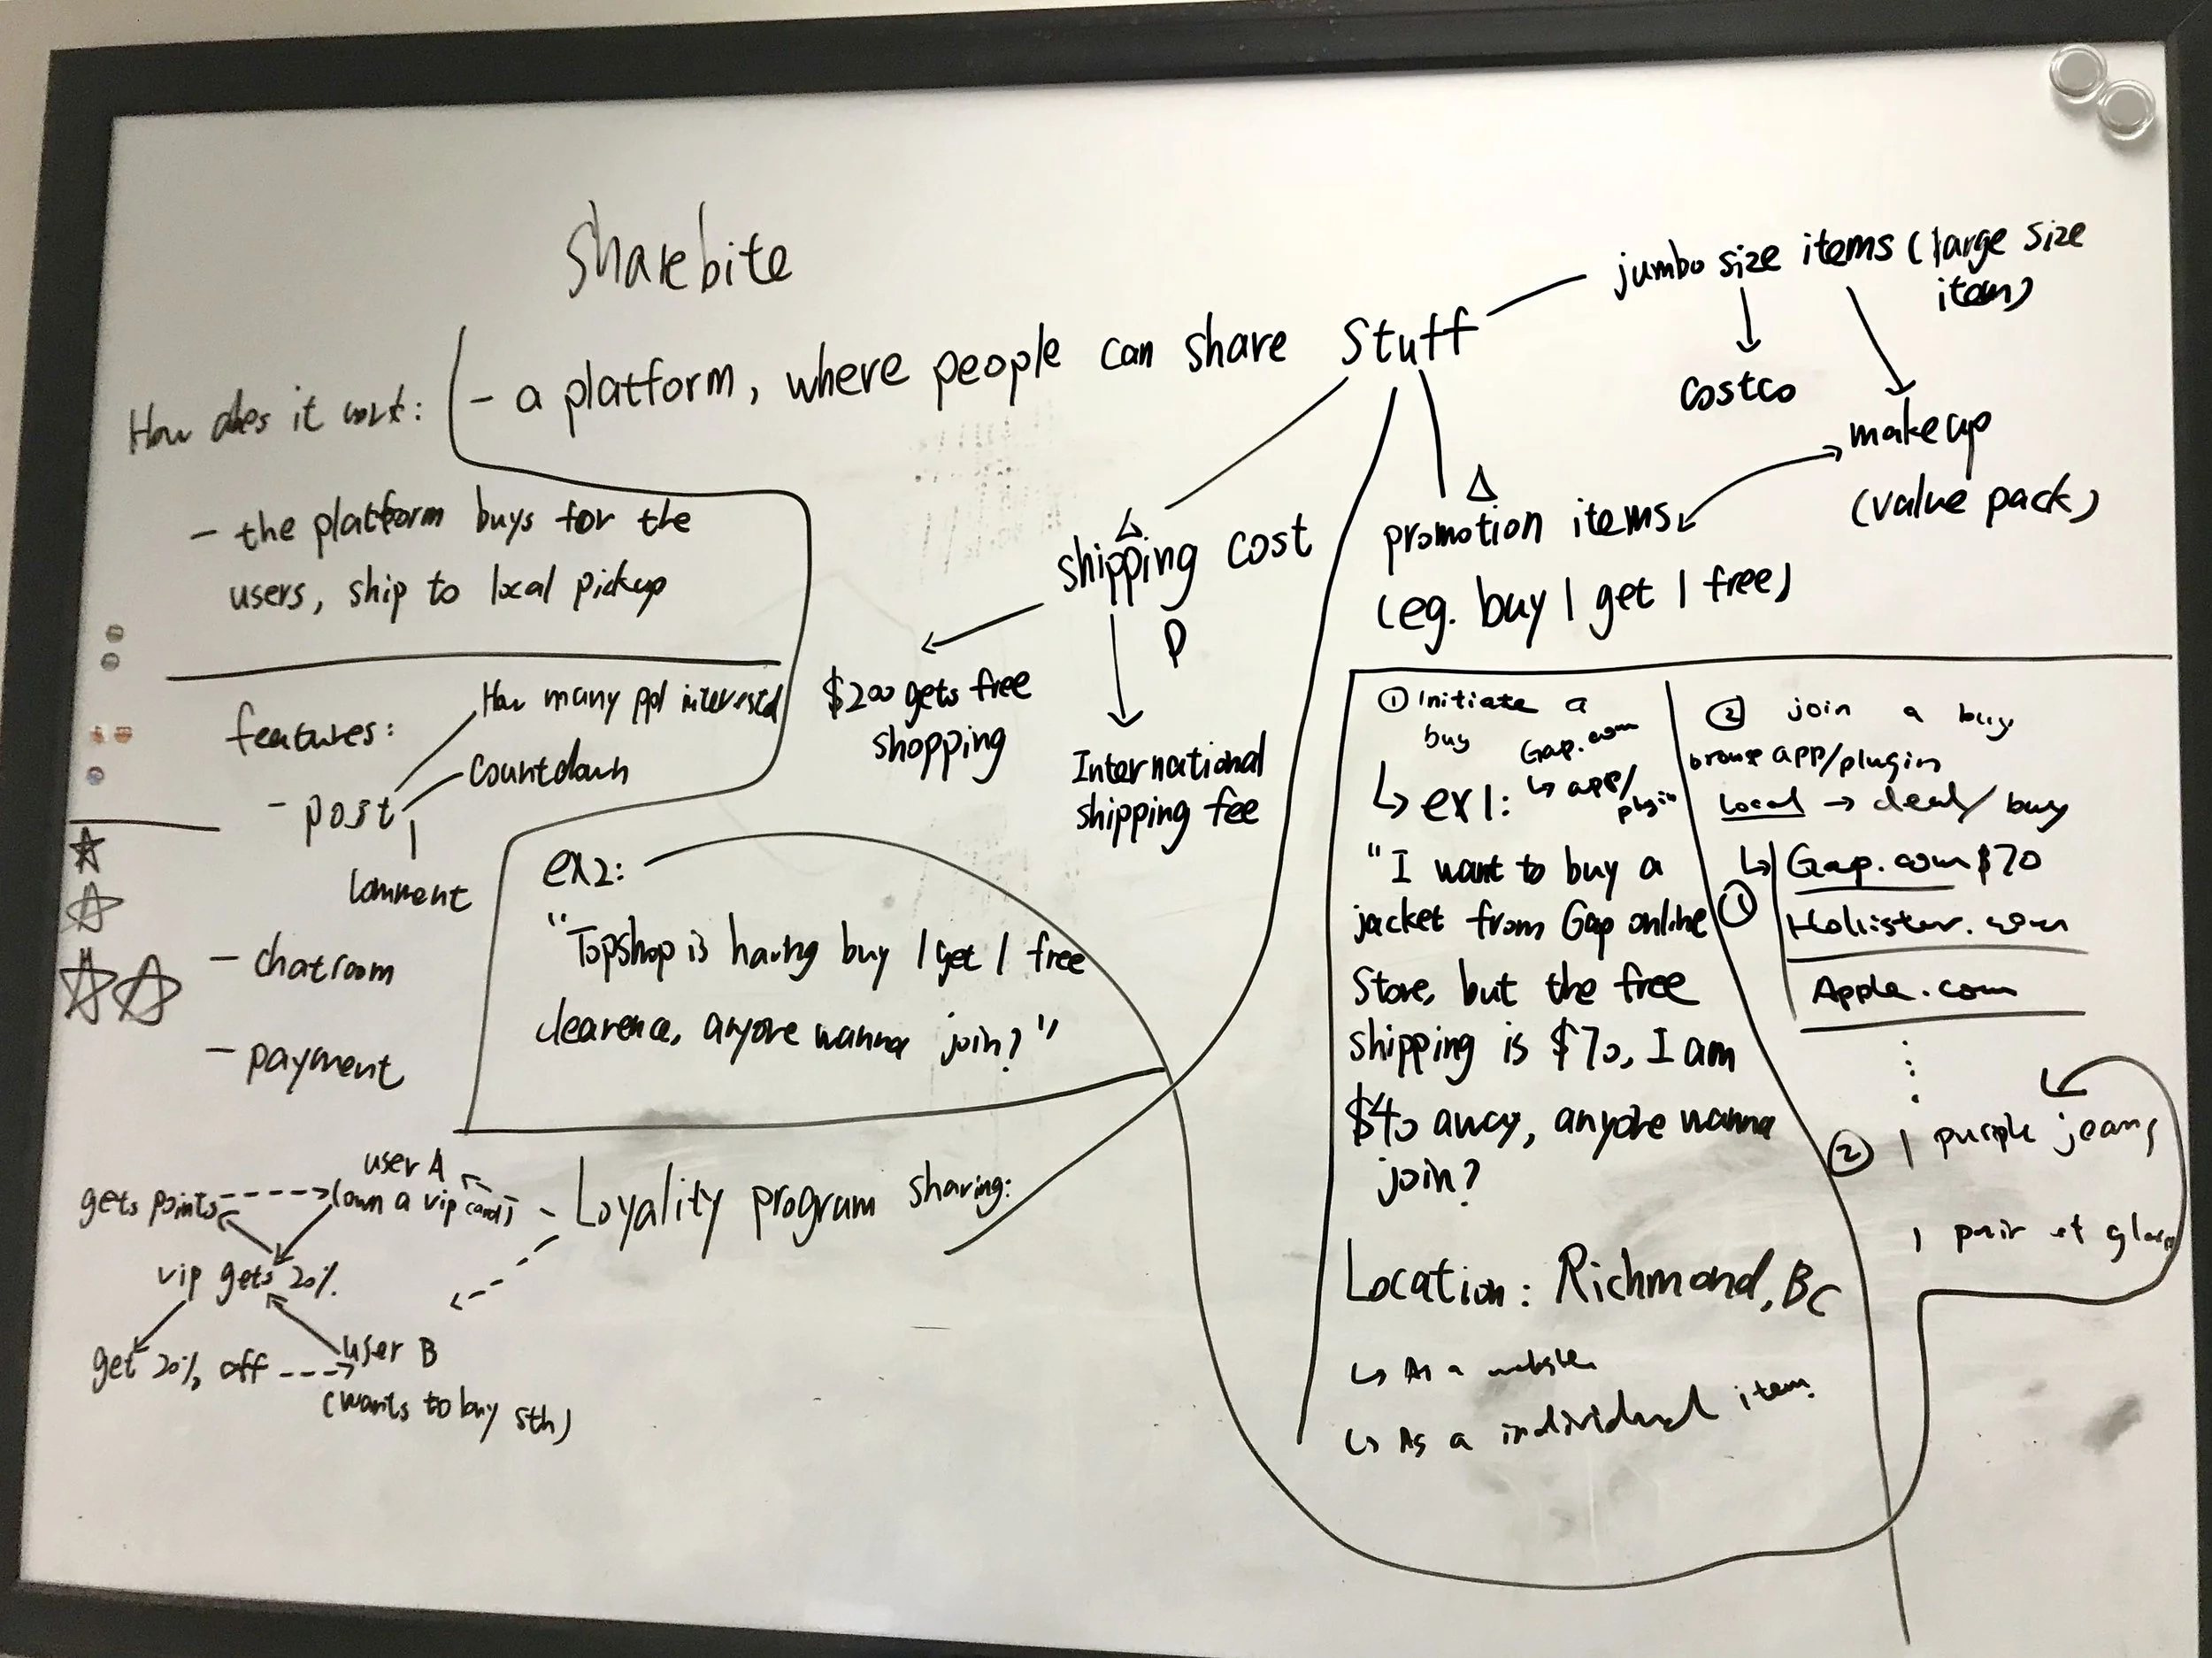 Sharebite
- a platform, where people can share stuff
jumbo size items (large size
item)
costco
makeup
(value pack)
promotion items
(eg. buy 1 get 1 free)
shipping cost
$200 gets free
shopping
International
shipping fee
How does it work:
- the platform buys for the
users, ship to local pickup
features:
- post
How many ppl interested
Countdown
Comment
- chatroom
- payment
ex2:
"Topshop is having buy 1 get 1 free
clearence, anyone wanna join?"
- Loyality program sharing:
user A
(own a vip card)
gets points
vip gets 20%
get 20% off
user B
(wants to buy sth)
① Initiate a
buy
Gap.com
↳ app/
plugin
↳ ex1:
"I want to buy a
jacket from Gap online
Store, but the free
shipping is $70, I am
$40 away, anyone wanna
join?
Location: Richmond, BC
↳ As a website
↳ As a individual item
② join a buy
browse app/plugin
local → deal/buy
① ↳ Gap.com $70
Hollister.com
Apple.com
② 1 purple jeans
1 pair of